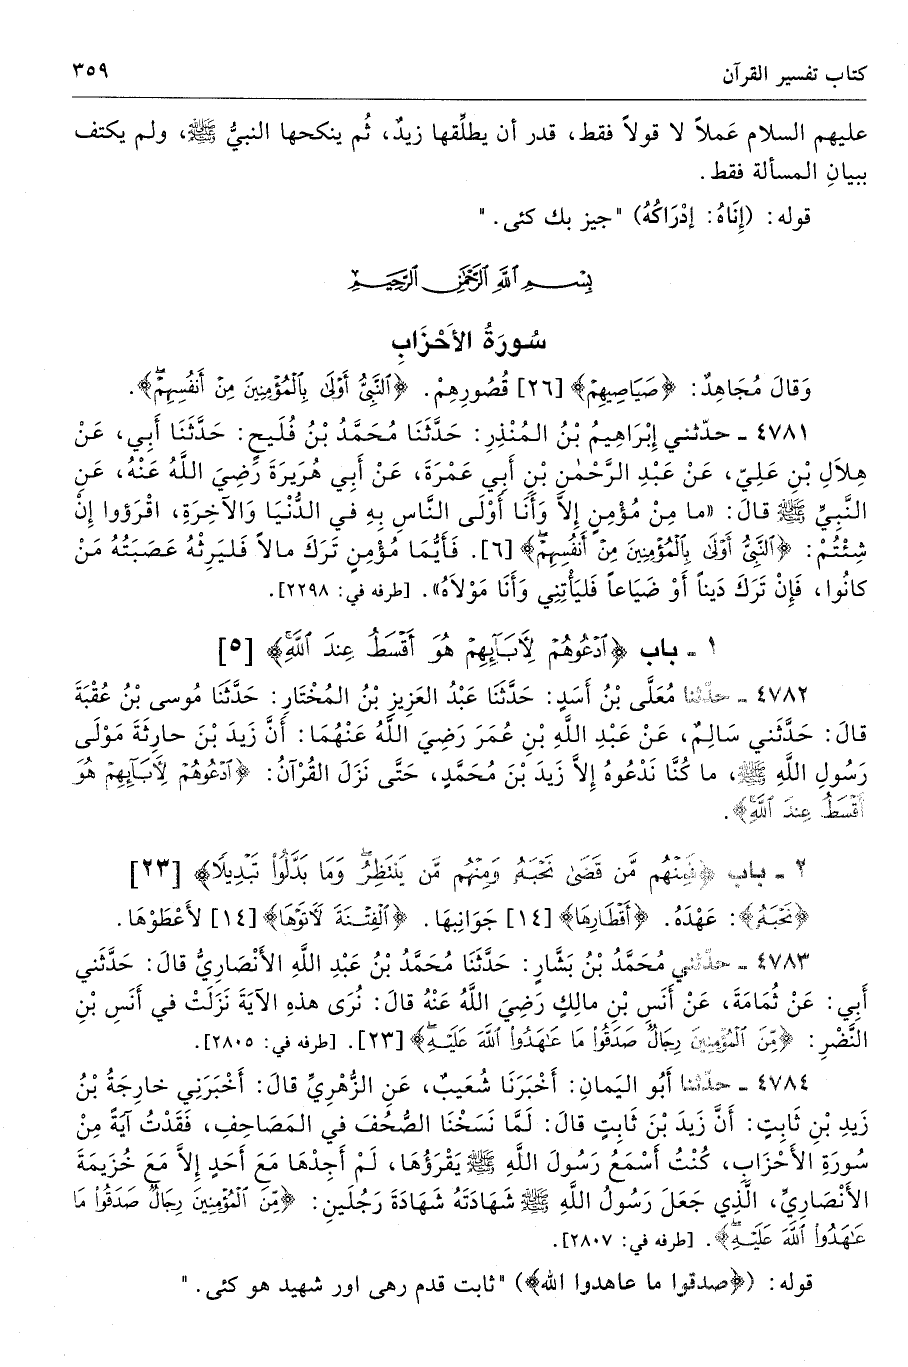 كتاب تفسير القرآن ٣٥٩
عليهم السلام عَملاً لا قولاً فقط، قدر أن يطلِّقها زيدٌ، ثُم ينكحها النبيُّ ﷺ، ولم يكتف
ببيانِ المسألة فقط.
قوله: (إِنَاهُ: إدْرَاكُهُ) "جيز بك كئى."
بِسْمِ ٱللَّهِ ٱلرَّحْمَٰنِ ٱلرَّحِيمِ
سُورَةُ الأَحْزَابِ
وَقالَ مُجَاهِدٌ: ﴿صَيَاصِيهِمْ﴾ [٢٦] قُصُورِهِمْ. ﴿ٱلنَّبِيُّ أَوْلَىٰ بِٱلْمُؤْمِنِينَ مِنْ أَنفُسِهِمْۖ﴾.
٤٧٨١ ـ حدّثني إِبْرَاهِيمُ بْنُ المُنْذِرِ: حَدَّثَنَا مُحَمَّدُ بْنُ فُلَيحٍ: حَدَّثَنَا أَبِي، عَنْ
هِلاَلِ بْنِ عَلِيّ، عَنْ عَبْدِ الرَّحْمٰنِ بْنِ أَبِي عَمْرَةَ، عَنْ أَبِي هُرَيرَةَ رَضِيَ اللَّهُ عَنْهُ، عَنِ
النَّبِيِّ ﷺ قالَ: «ما مِنْ مُؤْمِنٍ إِلاَّ وَأَنَا أَوْلَى النَّاسِ بِهِ في الدُّنْيَا وَالآخِرَةِ، اقْرَؤوا إِنْ
شِئْتُمْ: ﴿ٱلنَّبِيُّ أَوْلَىٰ بِٱلْمُؤْمِنِينَ مِنْ أَنفُسِهِمْۖ﴾ [٦]. فَأَيُّمَا مُؤْمِنٍ تَرَكَ مالاً فَليَرِثْهُ عَصَبَتُهُ مَنْ
كانُوا، فَإِنْ تَرَكَ دَيناً أَوْ ضَيَاعاً فَليَأْتِنِي وَأَنَا مَوْلاَهُ». [طرفه في: ٢٢٩٨].
١ ـ باب ﴿ٱدْعُوهُمْ لِأَبَآئِهِمْ هُوَ أَقْسَطُ عِندَ ٱللَّهِۚ﴾ [٥]
٤٧٨٢ ـ حدّثنا مُعَلَّى بْنُ أَسَدٍ: حَدَّثَنَا عَبْدُ العَزِيزِ بْنُ المُخْتَارِ: حَدَّثَنَا مُوسى بْنُ عُقْبَةَ
قالَ: حَدَّثَنِي سَالِمٌ، عَنْ عَبْدِ اللَّهِ بْنِ عُمَرَ رَضِيَ اللَّهُ عَنْهُمَا: أَنَّ زَيدَ بْنَ حارِثَةَ مَوْلَى
رَسُولِ اللَّهِ ﷺ، ما كُنَّا نَدْعُوهُ إِلاَّ زَيدَ بْنَ مُحَمَّدٍ، حَتَّى نَزَلَ القُرْآنُ: ﴿ٱدْعُوهُمْ لِأَبَآئِهِمْ هُوَ
أَقْسَطُ عِندَ ٱللَّهِۚ﴾.
٢ ـ باب ﴿فَمِنْهُم مَّن قَضَىٰ نَحْبَهُۥ وَمِنْهُم مَّن يَنتَظِرُۖ وَمَا بَدَّلُوا۟ تَبْدِيلًا﴾ [٢٣]
﴿نَحْبَهُۥ﴾: عَهْدَهُ. ﴿أَقْطَارِهَا﴾ [١٤] جَوَانِبِهَا. ﴿ٱلْفِتْنَةَ لَآتَوْهَا﴾ [١٤] لأَعْطَوْهَا.
٤٧٨٣ ـ حدّثني مُحَمَّدُ بْنُ بَشَّارٍ: حَدَّثَنَا مُحَمَّدُ بْنُ عَبْدِ اللَّهِ الأَنْصَارِيُّ قالَ: حَدَّثَنِي
أَبِي: عَنْ ثُمَامَةَ، عَنْ أَنَسِ بْنِ مالِكٍ رَضِيَ اللَّهُ عَنْهُ قالَ: نُرَى هذهِ الآيَةَ نَزَلَتْ في أَنَسِ بْنِ
النَّضْرِ: ﴿مِّنَ ٱلْمُؤْمِنِينَ رِجَالٌ صَدَقُوا۟ مَا عَٰهَدُوا۟ ٱللَّهَ عَلَيْهِۖ﴾ [٢٣]. [طرفه في: ٢٨٠٥].
٤٧٨٤ ـ حدّثنا أَبُو اليَمانِ: أَخْبَرَنَا شُعَيبٌ، عَنِ الزُّهْرِيِّ قالَ: أَخْبَرَنِي خارِجَةُ بْنُ
زَيدِ بْنِ ثَابِتٍ: أَنَّ زَيدَ بْنَ ثَابِتٍ قالَ: لَمَّا نَسَخْنَا الصُّحُفَ في المَصَاحِفِ، فَقَدْتُ آيَةً مِنْ
سُورَةِ الأَحْزَابِ، كُنْتُ أَسْمَعُ رَسُولَ اللَّهِ ﷺ يَقْرَؤُهَا، لَمْ أَجِدْهَا مَعَ أَحَدٍ إِلاَّ مَعَ خُزَيمَةَ
الأَنْصَارِيِّ، الَّذِي جَعَلَ رَسُولُ اللَّهِ ﷺ شَهَادَتَهُ شَهَادَةَ رَجُلَينِ: ﴿مِّنَ ٱلْمُؤْمِنِينَ رِجَالٌ صَدَقُوا۟ مَا
عَٰهَدُوا۟ ٱللَّهَ عَلَيْهِۖ﴾. [طرفه في: ٢٨٠٧].
قوله: (﴿صدقوا ما عاهدوا الله﴾) "ثابت قدم رهى اور شهيد هو كئى."